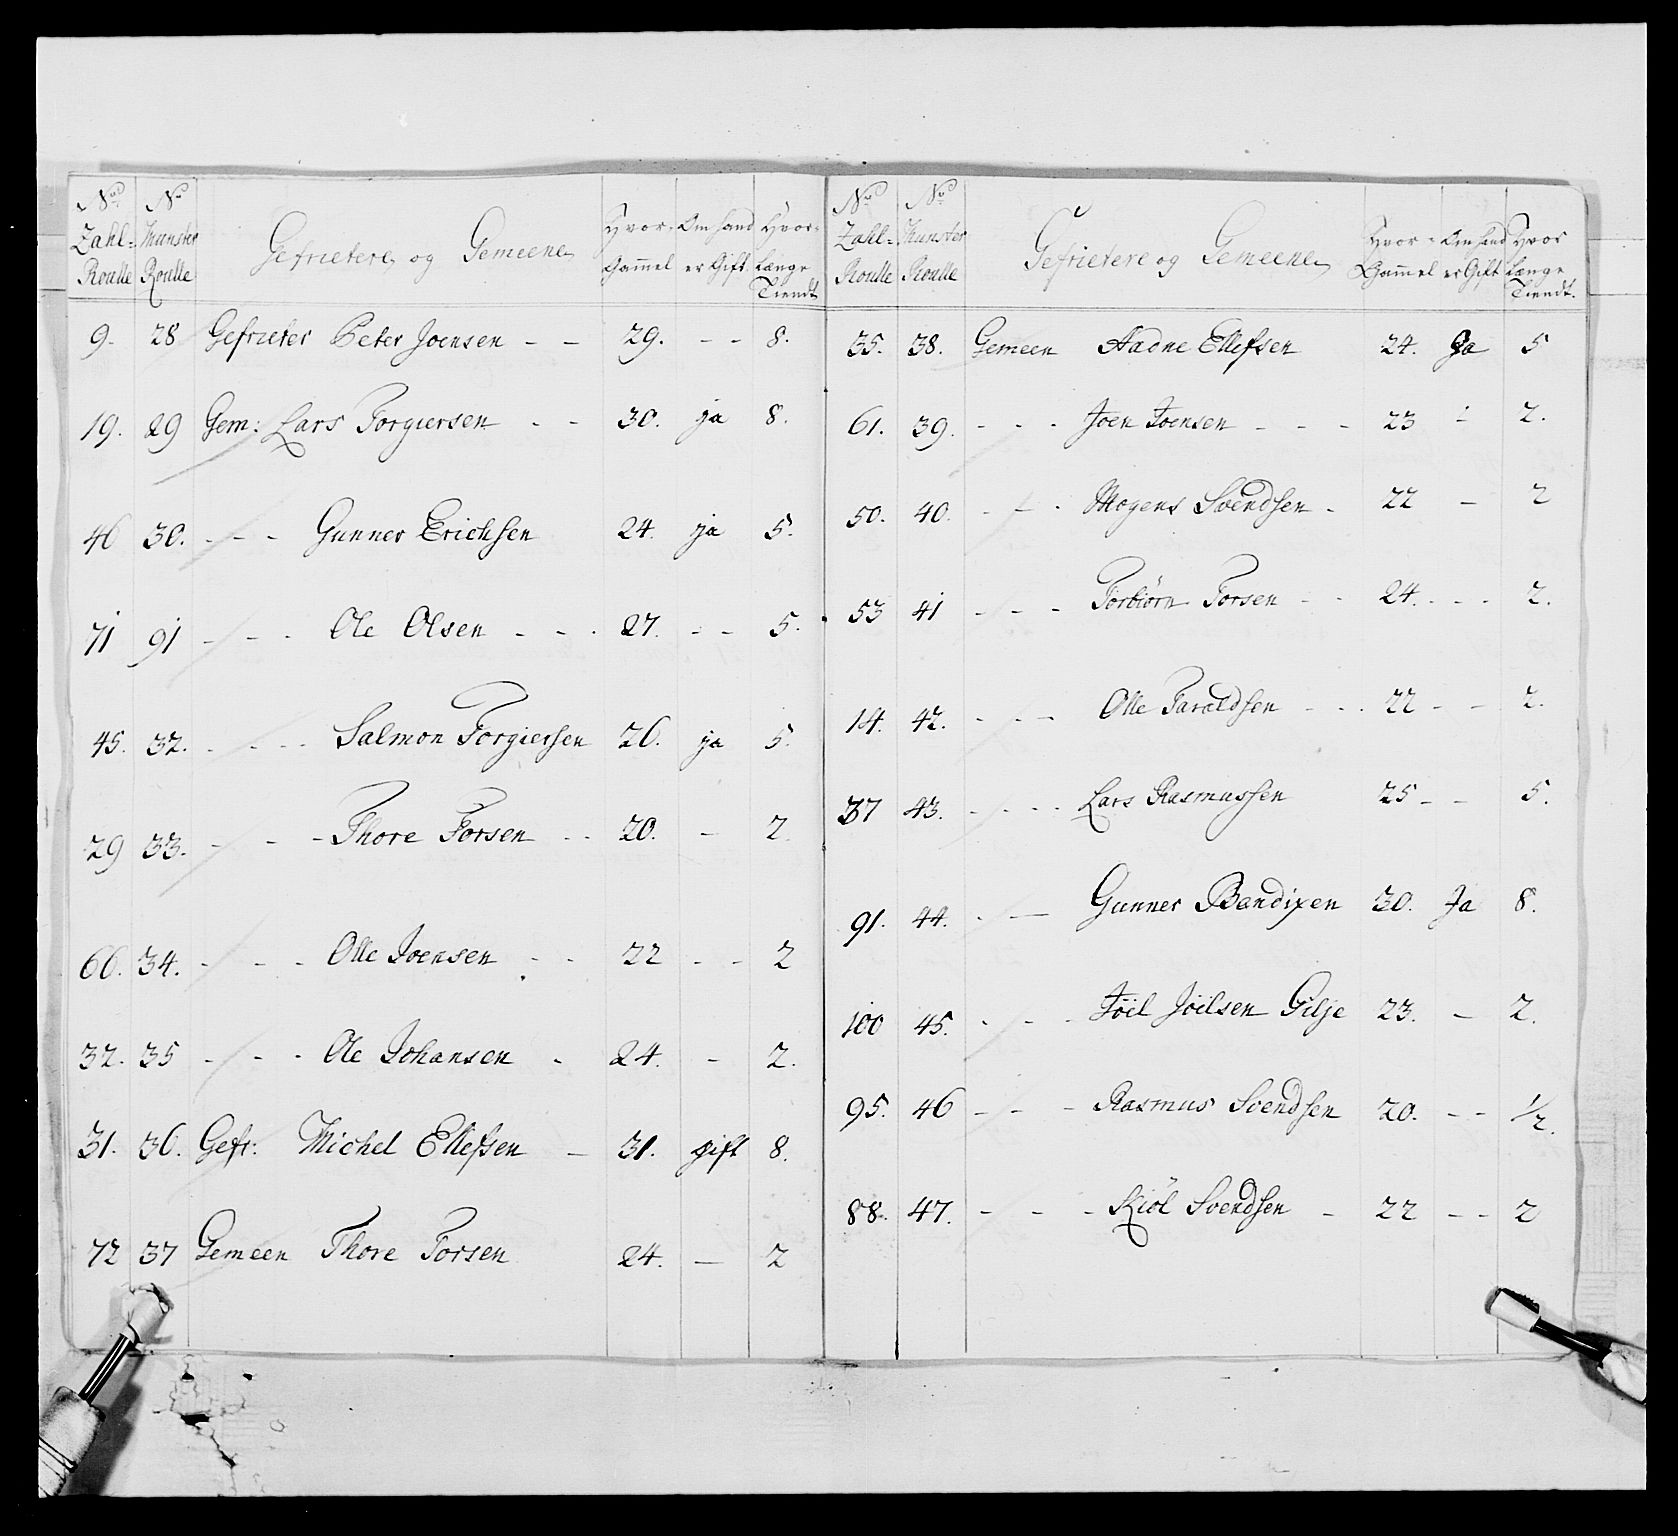 No. No Hvor- Om hand Hvor-
Zahl- Munster Gefrietere og Gemeene Gammel er Gift Længe
Roulle Roulle Tiendt
9. 28 Gefrieter Peter Joensen - - 29. - - 8.
19. 29 Gem: Lars Torgiersen - - 30. ja 8.
46 30. - - - Gunner Erichsen 24. ja 5.
71 91 - - - Ole Olsen - - . 27. - - 5.
45. 32. - - - - Salmon Torgiersen 26. ja 5.
29 33. - - - Thore Torsen - - 20. - 2.
66. 34. - - - Olle Joensen - - 22 - - 2
32. 35 - - - Ole Johansen - 24. - 2.
31. 36. Gefr: Michel Ellefsen - 31. gift 8.
72 37 Gemeen Thore Torsen 24. - 2
No. No. Hvor- Om hand Hvor
Zahl- Munster Gefrietere og Gemeene Gammel er Gift Længe
Roulle Roulle Tiendt.
35. 38. Gemeen Aadne Ellefsen 24. Ja 5
61. 39. - - - Joen Joensen - - - 23 - 2.
50. 40. - - - Mogens Svendsen - 22 - 2
53 41 - - - Torbiörn Torsen - - 24. - - - 2.
14. 42. - - - Olle Taraldsen - - . 22 - - 2.
37 43. - - - - Lars Rasmussen 25 - - 5.
91. 44. - - Gunner Bendixen 30. Ja 8.
100 45. - - - Jöel Jöelsen Gilje 23. - 2.
95. 46 - - - Rasmus Svendsen 20. - - 1/2.
88. 47. - - - Kiöl Svendsen - 22 - - 2